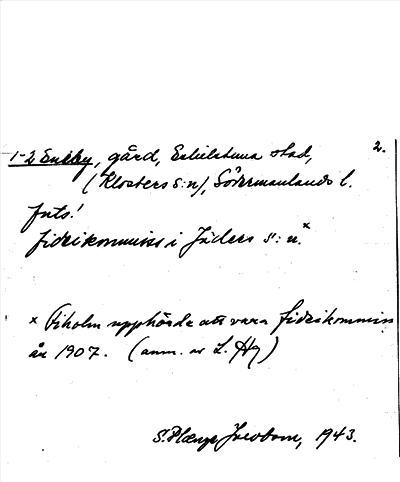 1-2 Eneby, gård, Eskilstuna stad, 2.
(Klosters s:n), Södermanlands l.
forts!
fideikommiss i Jäders s:n.x
x Fiholm upphörde att vara fideikommiss
år 1907. (anm. av L. Hg)
S. Plænge Jacobson, 1943.